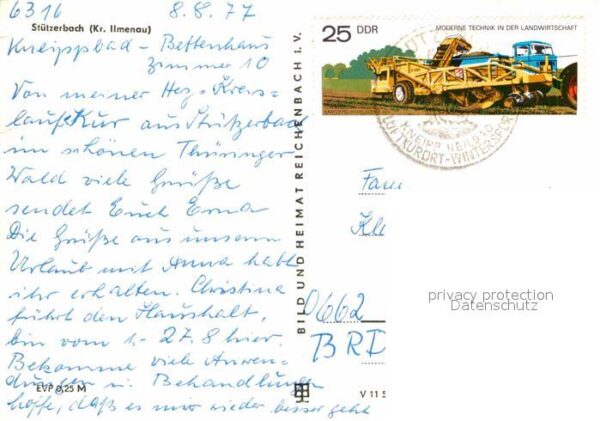 6316 8.8.77
Stützerbach (Kr. Ilmenau)
Kneippbad - Bettenhaus
Zimmer 10
Von meiner Herz-Kreis-
laufkur aus Stützerbach
im schönen Thüringer
Wald viele Grüße
sendet Euch Erna
Die Grüße aus unserm
Urlaub mit Anna habt
ihr erhalten. Christina
führt den Haushalt,
bin vom 1.-27.8 hier.
Bekomme viele Anwen-
dungen u. Behandlungen
hoffe, daß es mir wieder besser geht
EVP 0,25 M
BILD UND HEIMAT REICHENBACH i. V.
25 DDR
MODERNE TECHNIK IN DER LANDWIRTSCHAFT
KNEIPP HEILBAD
LUFTKURORT-WINTERSPORT
Fam
Kl
0662
BRD
privacy protection
Datenschutz
V 11 5